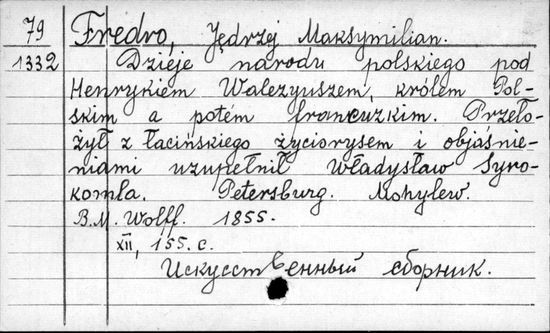 79 Fredro, Jędrzej Maksymilian.
1332 Dzieje narodu polskiego pod
Henrykiem Walezyuszem, królem Pol-
skim a potém francuzkim. Przeło-
żył z łacińskiego życiorysem i objaśnie-
niami uzupełnił Władysław Syro-
komla. Petersburg. Mohylew.
B.M. Wolff. 1855.
XII, 155. c.
Искусственный сборник.